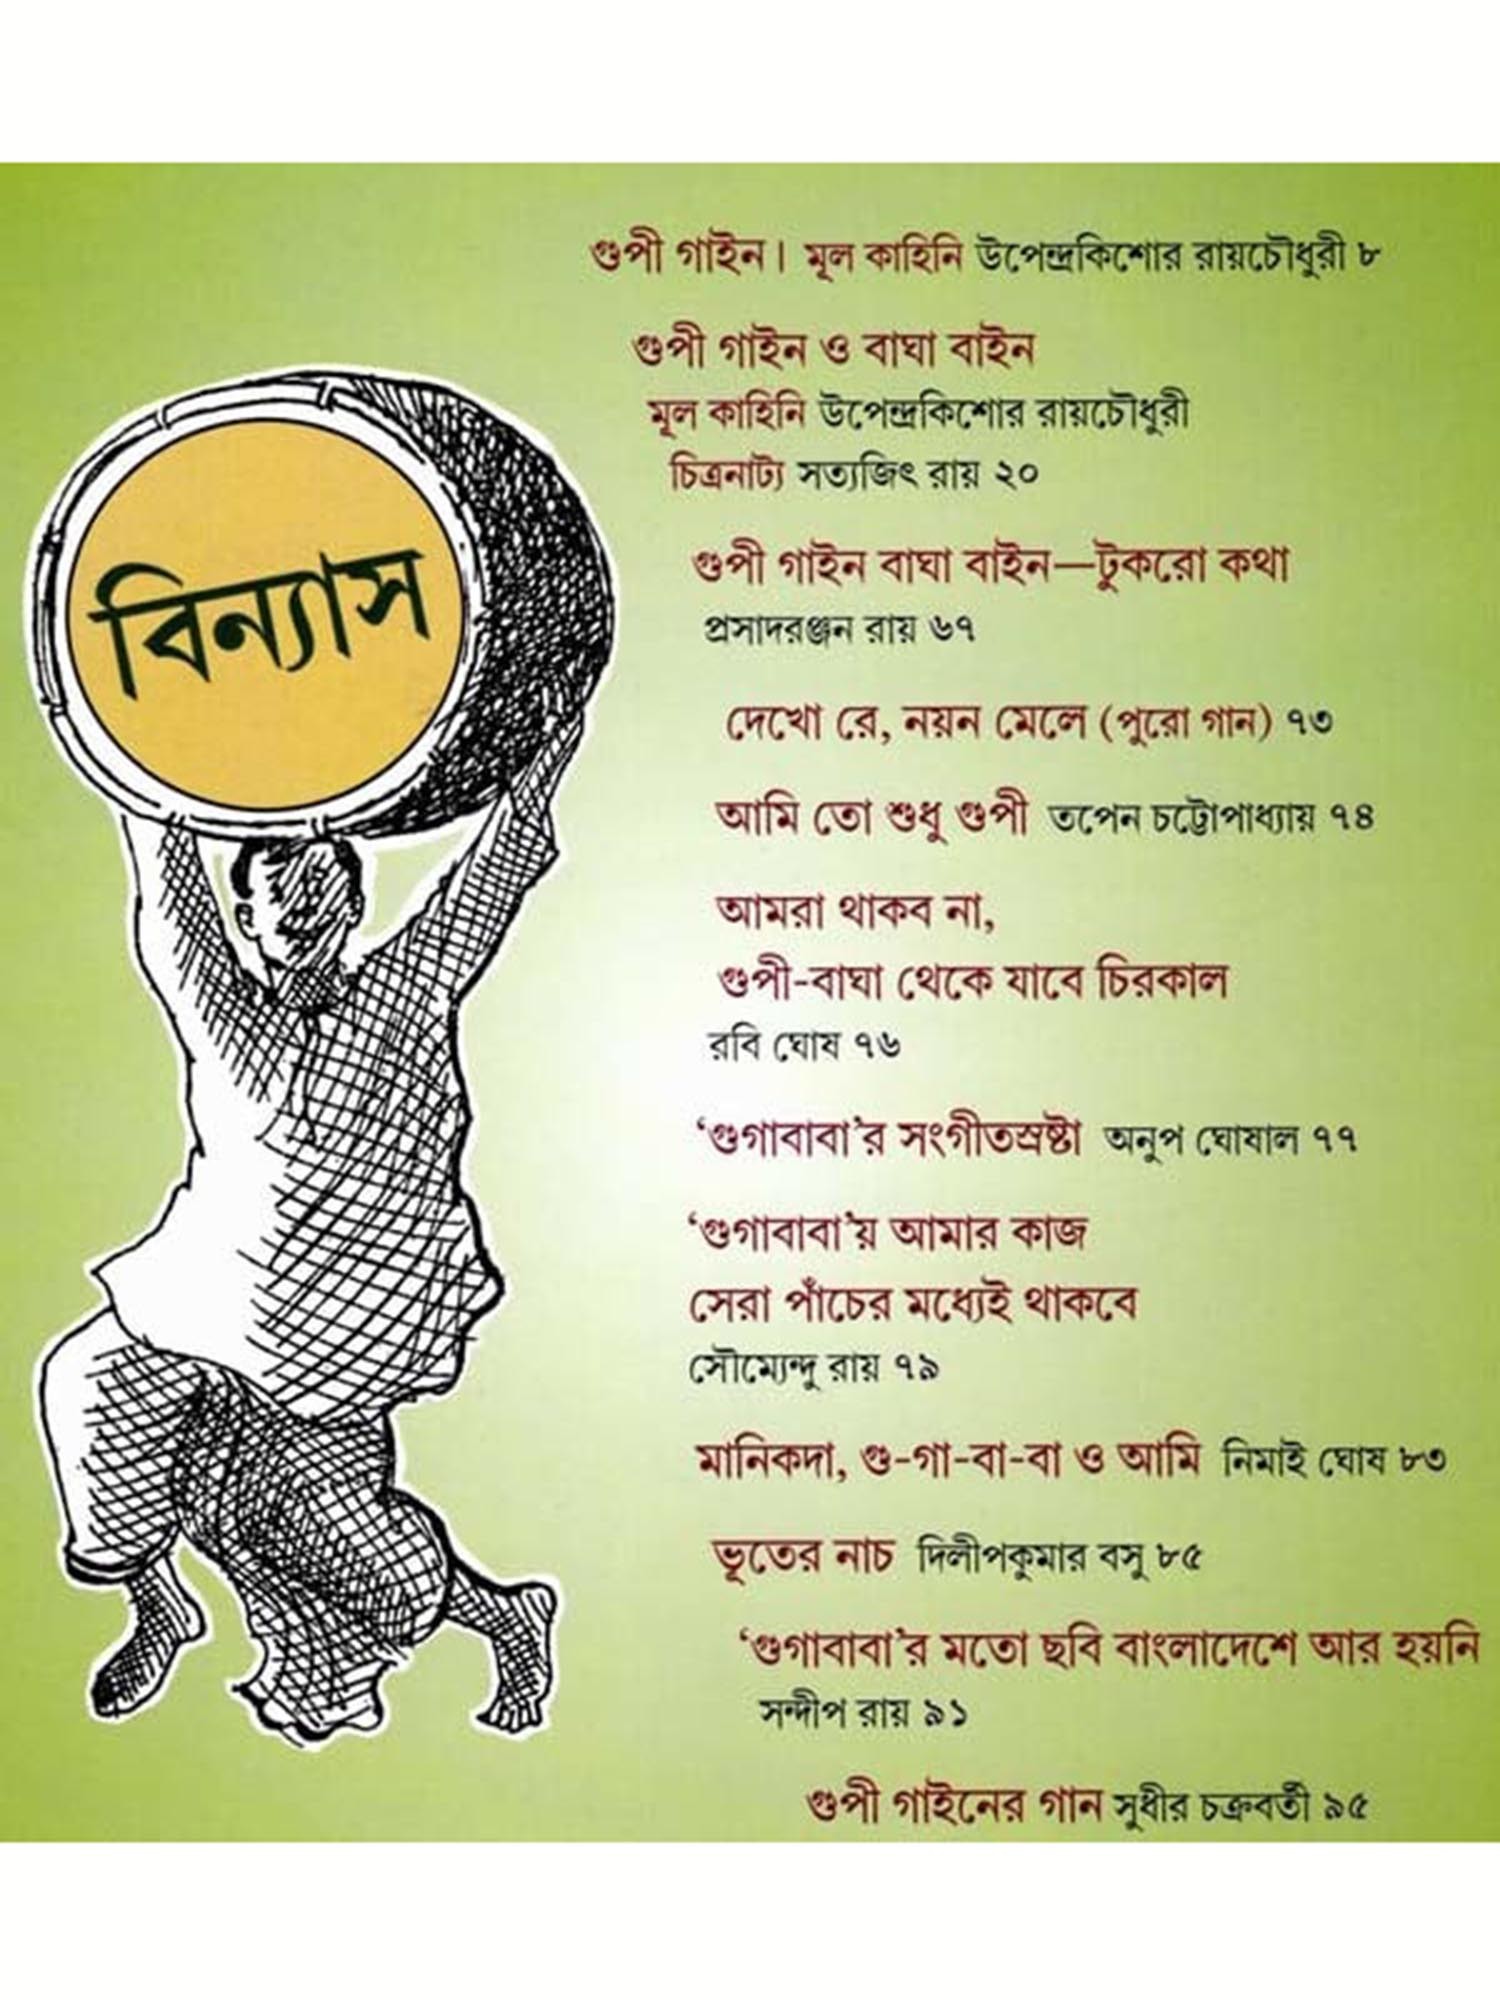 বিন্যাস
গুপী গাইন। মূল কাহিনি উপেন্দ্রকিশোর রায়চৌধুরী ৮
গুপী গাইন ও বাঘা বাইন
মূল কাহিনি উপেন্দ্রকিশোর রায়চৌধুরী
চিত্রনাট্য সত্যজিৎ রায় ২০
গুপী গাইন বাঘা বাইন—টুকরো কথা
প্রসাদরঞ্জন রায় ৬৭
দেখো রে, নয়ন মেলে (পুরো গান) ৭৩
আমি তো শুধু গুপী তপেন চট্টোপাধ্যায় ৭৪
আমরা থাকব না,
গুপী-বাঘা থেকে যাবে চিরকাল
রবি ঘোষ ৭৬
‘গুগাবাবা’র সংগীতস্রষ্টা অনুপ ঘোষাল ৭৭
‘গুগাবাবা’য় আমার কাজ
সেরা পাঁচের মধ্যেই থাকবে
সৌম্যেন্দু রায় ৭৯
মানিকদা, গু-গা-বা-বা ও আমি নিমাই ঘোষ ৮৩
ভূতের নাচ দিলীপকুমার বসু ৮৫
‘গুগাবাবা’র মতো ছবি বাংলাদেশে আর হয়নি
সন্দীপ রায় ৯১
গুপী গাইনের গান সুধীর চক্রবর্তী ৯৫